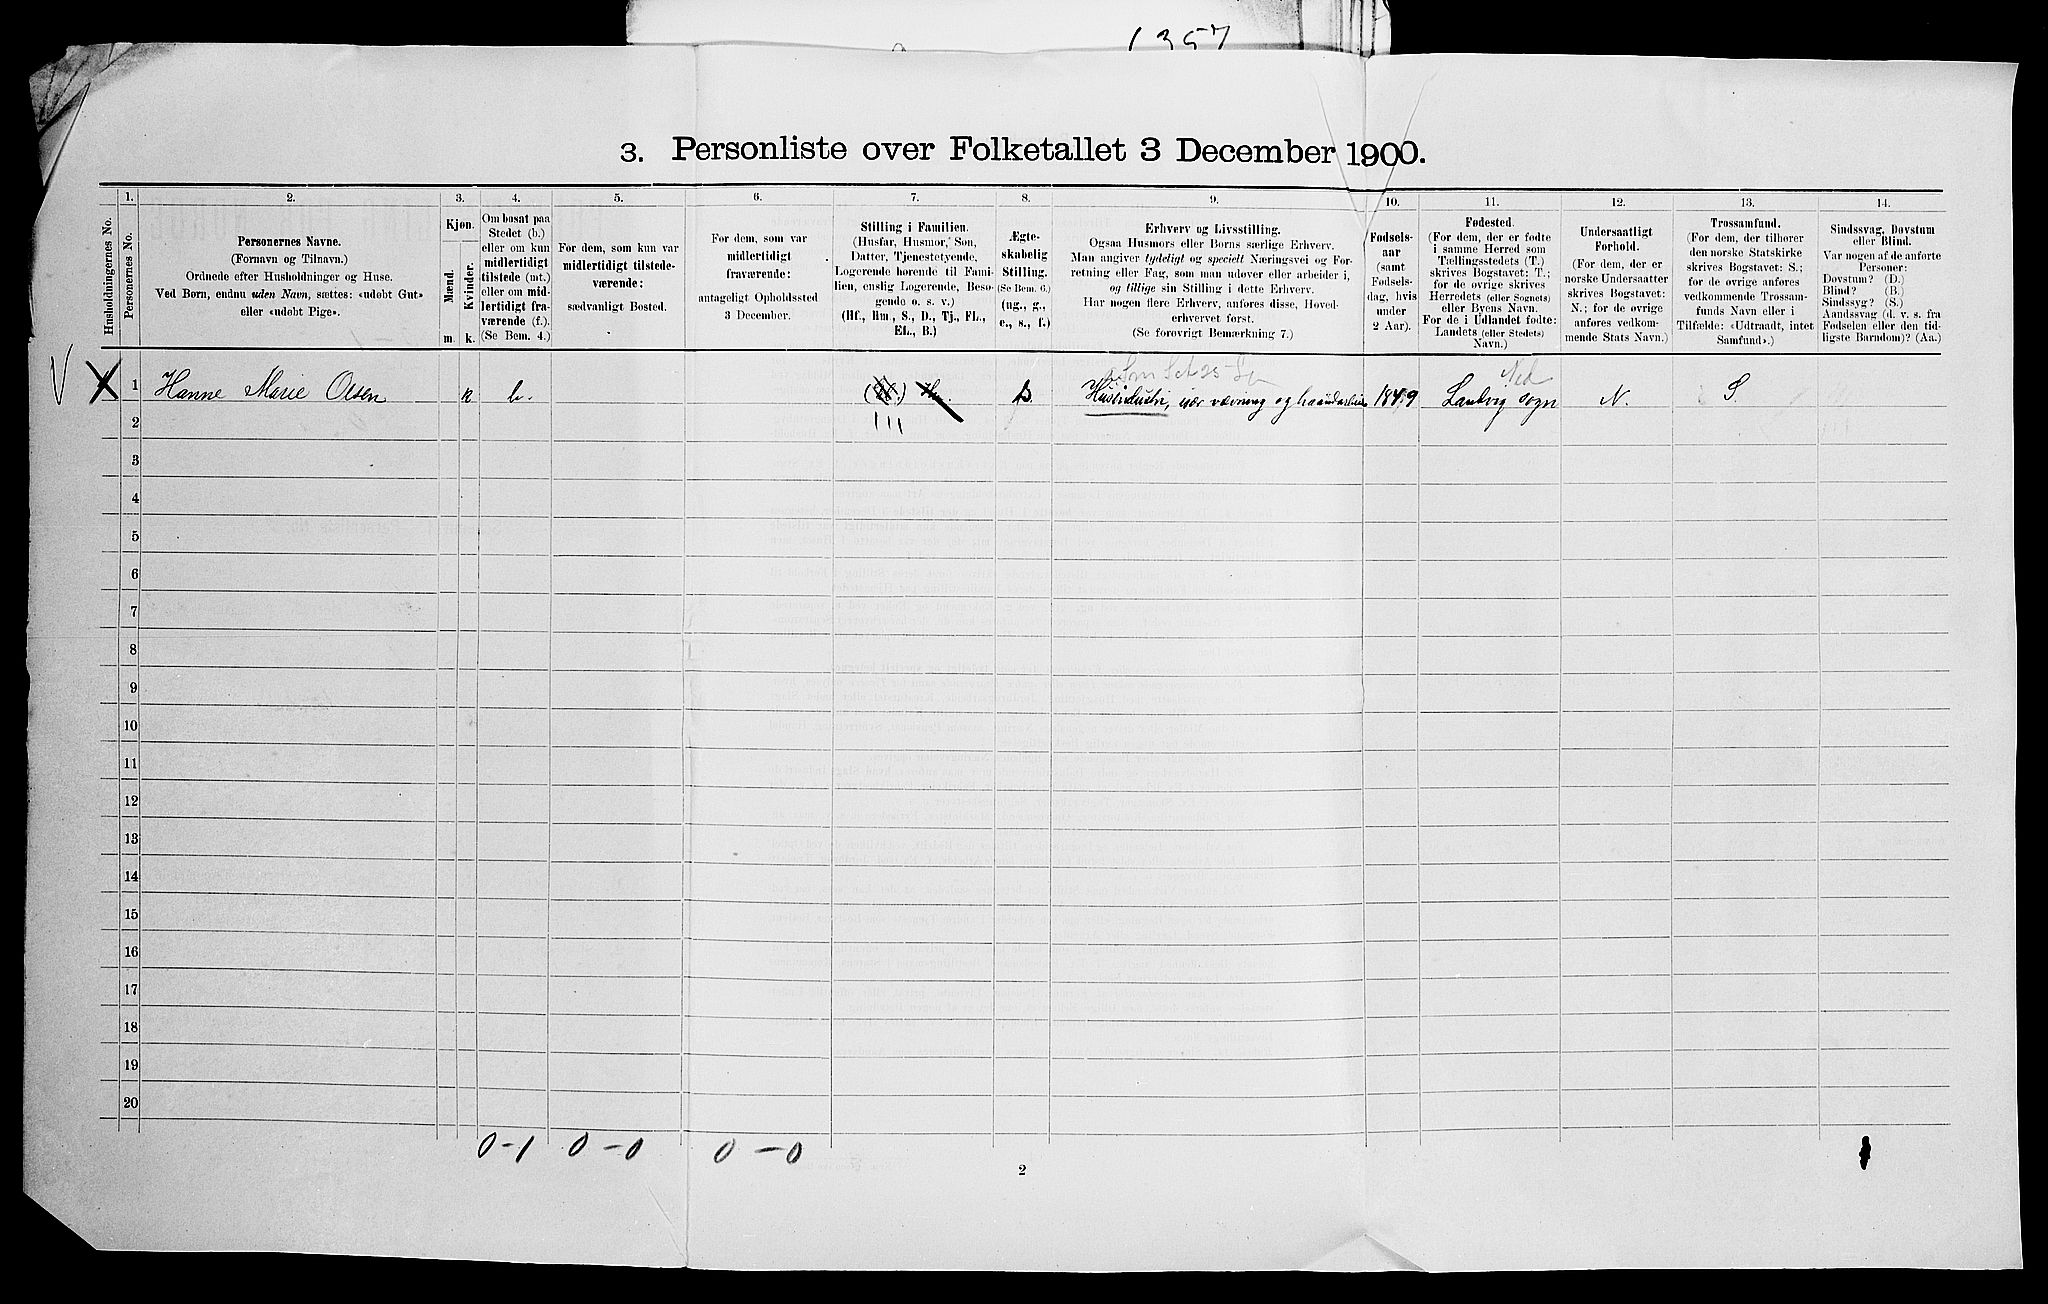 1357
3. Personliste over Folketallet 3 December 1900.
Husholdningernes No.
1.
Personernes No.
2.
Personernes Navne.
(Fornavn og Tilnavn.)
Ordnede efter Husholdninger og Huse.
Ved Børn, endnu uden Navn, sættes: «udøbt Gut»
eller «udøbt Pige».
3.
Kjøn.
Mænd.
Kvinder.
m.
k.
4.
Om bosat paa
Stedet (b.)
eller om kun
midlertidigt
tilstede (mt.)
eller om mid-
lertidigt fra-
værende (f.).
(Se Bem. 4.)
5.
For dem, som kun var
midlertidigt tilstede-
værende:
sædvanligt Bosted.
6.
For dem, som var
midlertidigt
fraværende:
antageligt Opholdssted
3 December.
7.
Stilling i Familien.
(Husfar, Husmor, Søn,
Datter, Tjenestetyende,
Logerende hørende til Fami-
lien, enslig Logerende, Besø-
gende o. s. v.)
(Hf., Hm., S., D., Tj., FL.,
EL., B.)
8.
Ægte-
skabelig
Stilling.
(Se Bem. 6.)
(ug., g.,
e., s., f.)
9.
Erhverv og Livsstilling.
Ogsaa Husmors eller Børns særlige Erhverv.
Man angiver tydeligt og specielt Næringsvei og For-
retning eller Fag, som man udøver eller arbeider i,
og tillige sin Stilling i dette Erhverv.
Har nogen flere Erhverv, anføres disse, Hoved-
erhvervet først.
(Se forøvrigt Bemærkning 7.)
10.
Fødsels-
aar
(samt
Fødsels-
dag, hvis
under
2 Aar).
11.
Fødested.
(For dem, der er fødte
i samme Herred som
Tællingsstedets (T.)
skrives Bogstavet: T.;
for de øvrige skrives
Herredets (eller Sognets)
eller Byens Navn.
For de i Udlandet fødte:
Landets (eller Stedets)
Navn.)
12.
Undersaatligt
Forhold.
(For dem, der er
norske Undersaatter
skrives Bogstavet:
N.; for de øvrige
anføres vedkom-
mende Stats Navn.)
13.
Trossamfund.
(For dem, der tilhører
den norske Statskirke
skrives Bogstavet: S.;
for de øvrige anføres
vedkommende Trossam-
funds Navn eller i
Tilfælde: «Udtraadt, intet
Samfund».)
14.
Sindssvag, Døvstum
eller Blind.
Var nogen af de anførte
Personer:
Døvstum? (D.)
Blind? (B.)
Sindssyg? (S.)
Aandssvag (d. v. s. fra
Fødselen eller den tid-
ligste Barndom)? (Aa.)
V X 1 Hanne Marie Olsen k b. Husindustri, især vævning og haandarbeide 1849 Landvig sogn N. S.
Ned
2
3
4
5
6
7
8
9
10
11
12
13
14
15
16
17
18
19
20
0-1 0-0 0-0
2